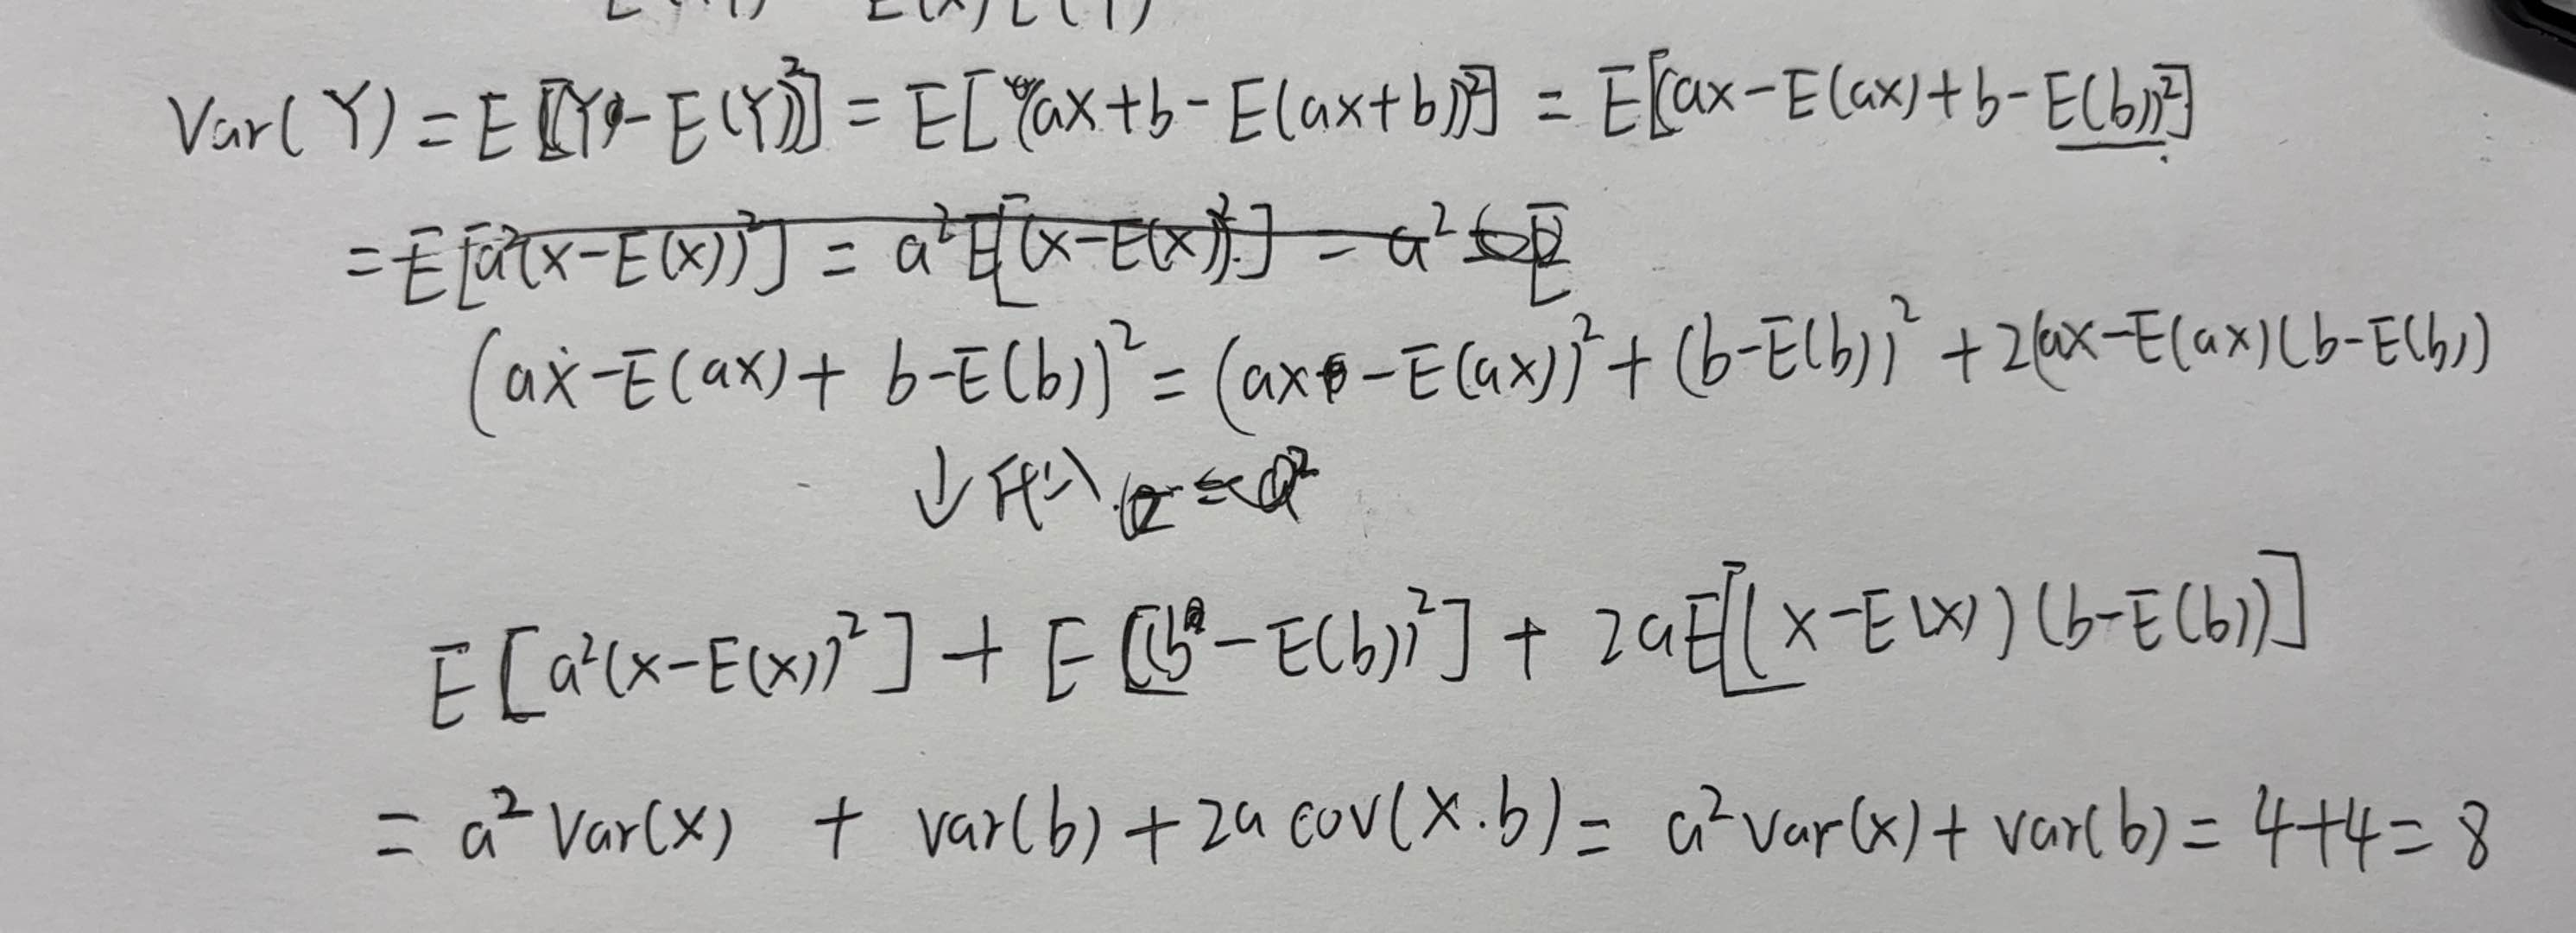 E(X)E(Y)
Var(Y) = E[(Y - E(Y))²] = E[(ax+b - E(ax+b))²] = E[(ax - E(ax) + b - E(b))²]
= E[a²(x - E(x))²] = a²E[(x - E(x))²] = a² E
(ax - E(ax) + b - E(b))² = (ax - E(ax))² + (b - E(b))² + 2(ax - E(ax)(b - E(b))
↓
E[a²(x - E(x))²] + E[(b - E(b))²] + 2aE[(x - E(x))(b - E(b))]
= a² Var(x) + var(b) + 2a cov(x.b) = a² var(x) + var(b) = 4+4 = 8